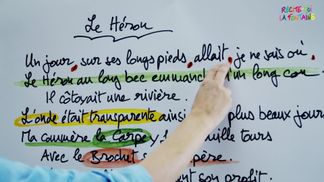 RÉCITE-MOI
LA FONTAINE
Le Héron
Un jour, sur ses longs pieds, allait, je ne sais où,
Le Héron au long bec emmanché d'un long cou
Il côtoyait une rivière.
L'onde était transparente ainsi plus beaux jours
Ma commère la Carpe y mille tours
Avec le Brochet son père.
profit.